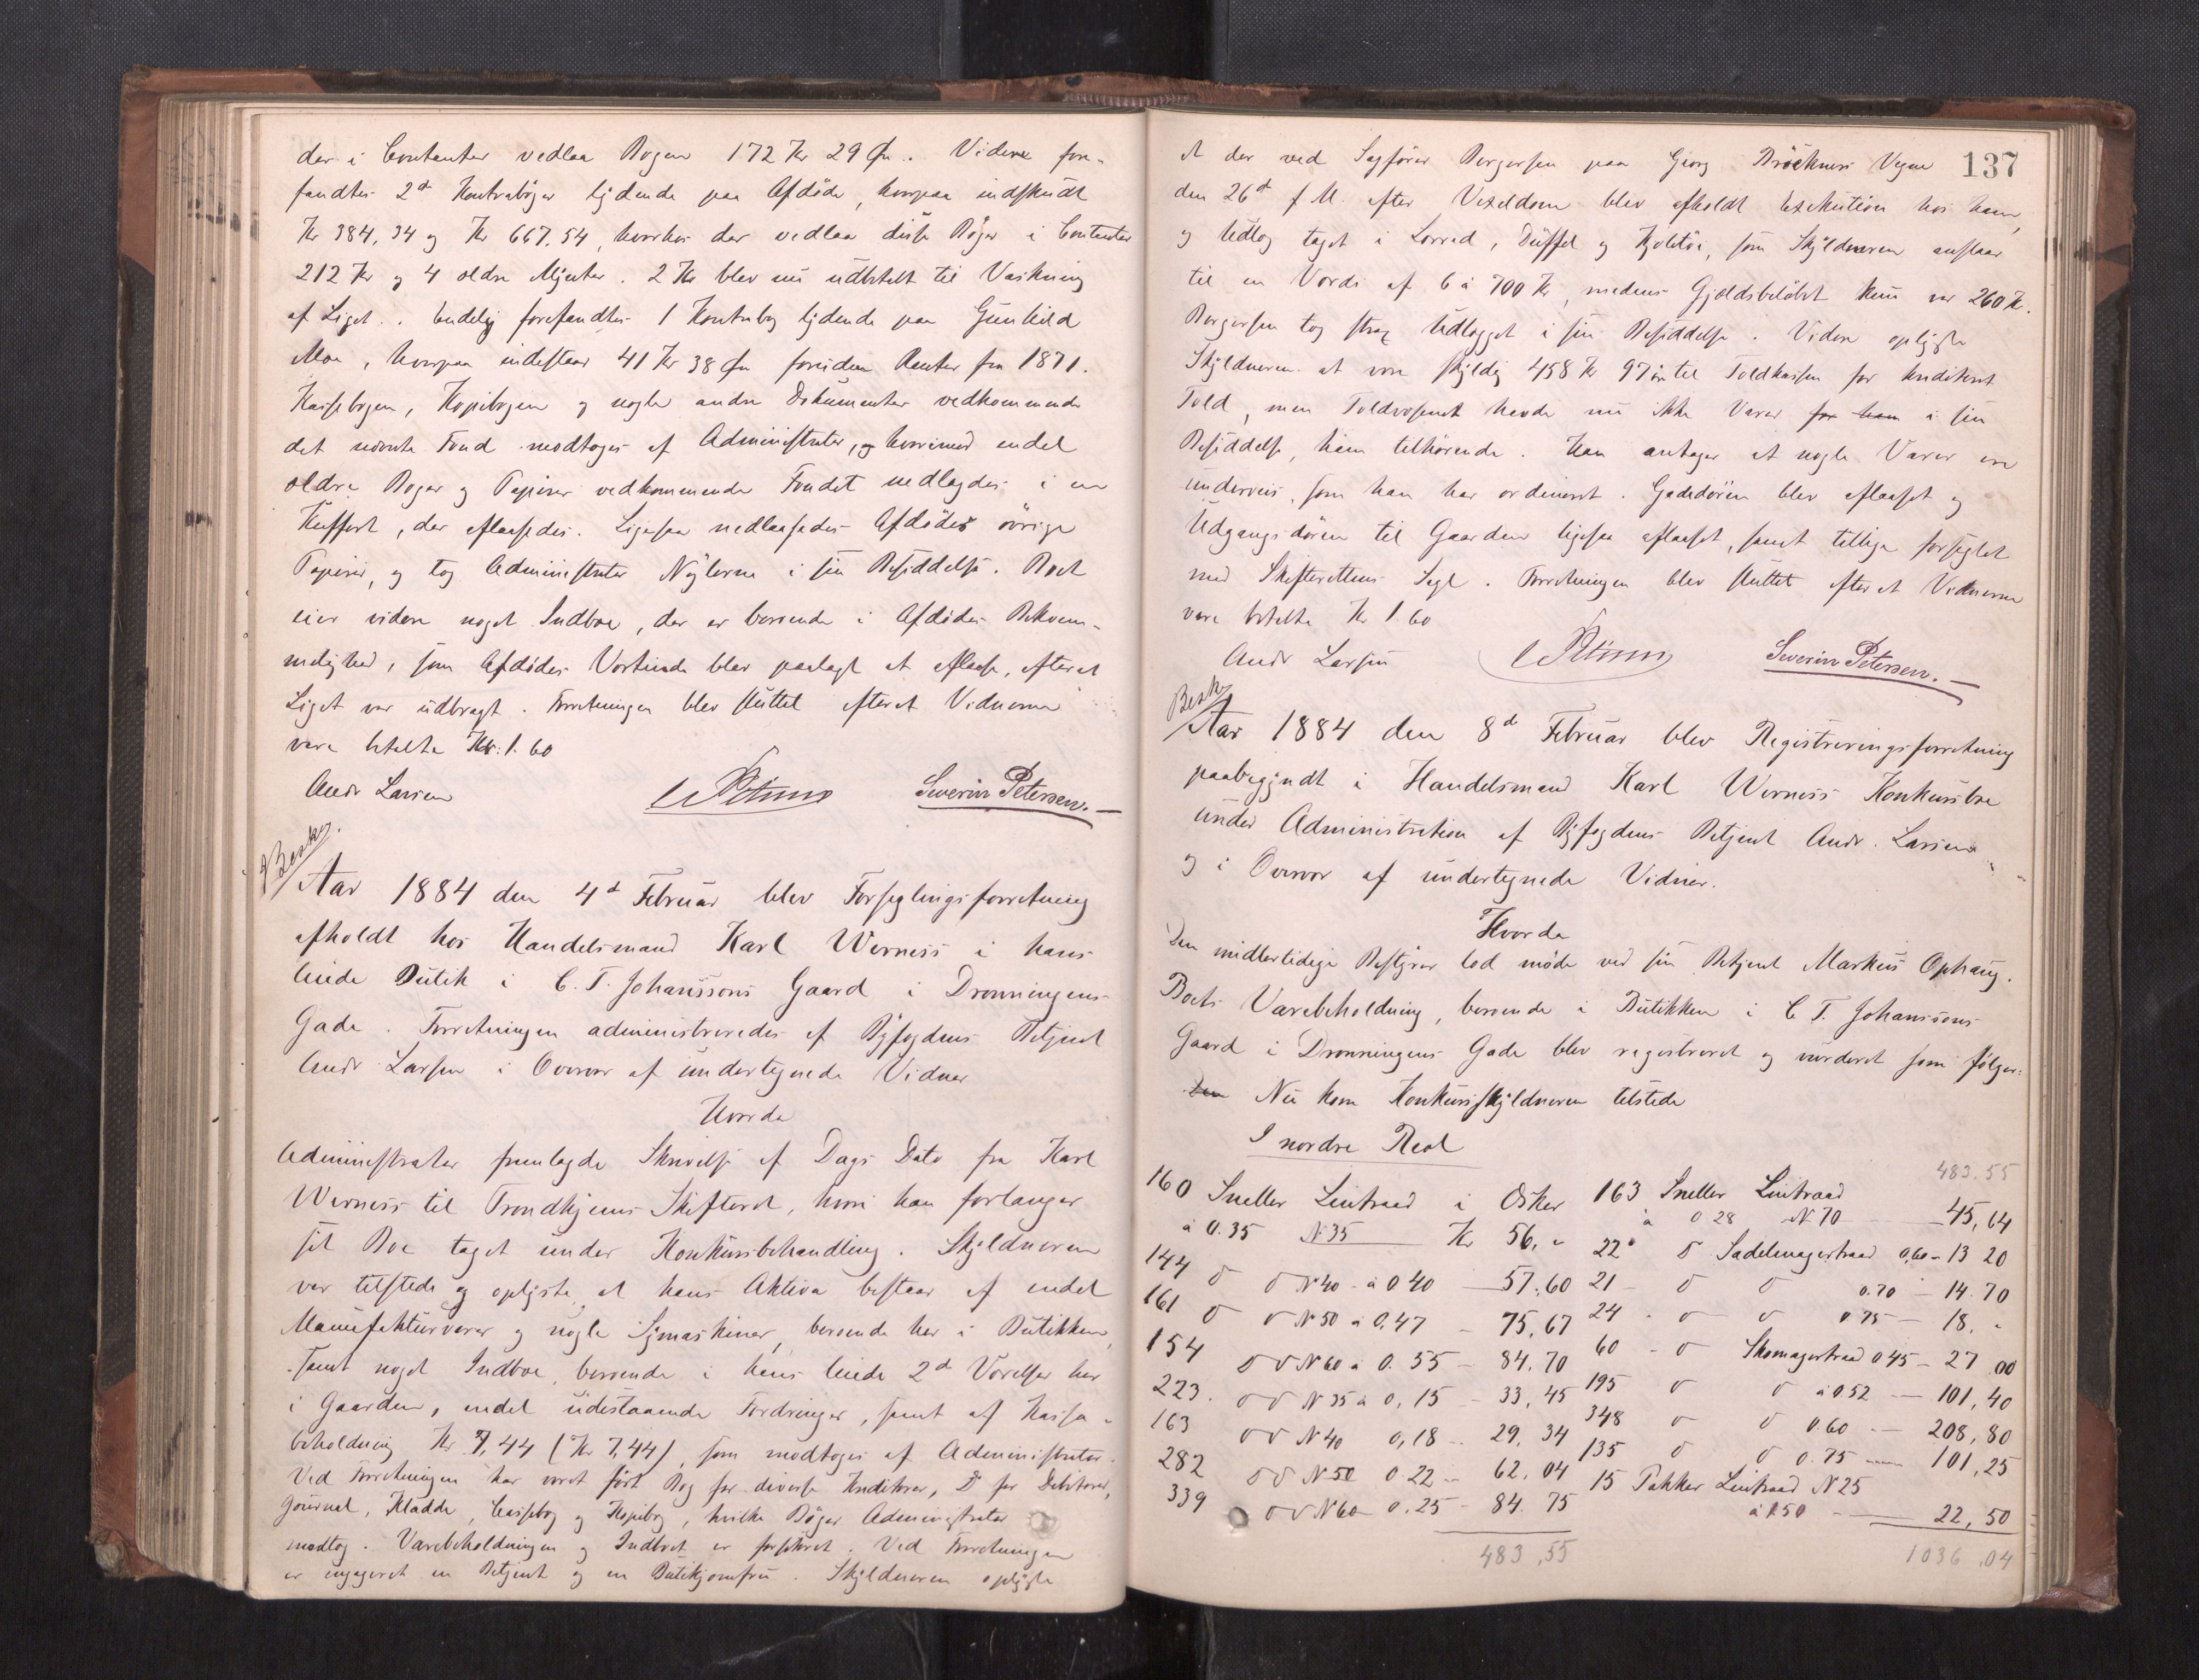 der i Contanter vedlaa Bogen 172 Kr 29 Øre. Videre fore-
fandtes 2de Kontrabøger lydende paa Afdøde, hvorpaa indskudt
Kr 384,34 og Kr 667,54, hvorhos der vedlaa disse Bøger i Contanter
212 Kr og 4 ældre Mynter. 2 Kr blev nu udbetalt til Vaskning
af Liget. Endelig forefandtes 1 Kontrabog lydende paa Gunhild
Moe, hvorpaa indestaar 41 Kr 38 Øre foruden Renter fra 1871.
Kassebogen, Kopibogen og nogle andre Dokumenter vedkommende
det nævnte Fond modtoges af Administrator, og hvorimod endel
ældre Bøger og Papirer vedkommende Fondet nedlagdes i en
Kuffert, der aflaasedes. Ligesaa nedlaasedes Afdødes øvrige
Papirer, og tog Administrator Nøglerne i sin Besiddelse. Boet
eier videre noget Indboe, der er beroende i Afdødes Bekvem-
melighed, som Afdødes Vertinde blev paalagt at aflaase, efterat
Liget var udbragt. Forretningen blev sluttet efterat Vidnerne
vare betalte Kr. 1.60
Andr Larsen Severin Petersen.
Besk.
Aar 1884 den 4de Februar blev Forseglingsforretning
afholdt hos Handelsmand Karl Werness i hans
leiede Butik i C. T. Johanssons Gaard i Dronningens
Gade. Forretningen administreredes af Byfogdens Betjent
Andr Larsen i Overvær af undertegnede Vidner
Hvorda
Administrator fremlagde Skrivelse af Dags Dato fra Karl
Werness til Trondhjems Skifteret, hvori han forlanger
sit Boe taget under Konkursbehandling. Skyldneren
var tilstede og oplyste, at hans Aktiva bestaar af endel
Manufakturvarer og nogle Symaskiner, beroende her i Butikken,
samt noget Indboe, beroende i hans leiede 2de Værelser her
i Gaarden, endel udestaaende Fordringer, samt af Kasse-
beholdning Kr. 7,44 (Kr 7,44), som modtoges af Administrator.
Ved Forretningen har været ført Bog for diverse Kreditorer, D for Debitorer,
Journal, Kladde, Cassebog og Kopibog, hvilke Bøger Administrator
modtog. Varebeholdningen og Indboet er forsikret. Ved Forretningen
er engageret en Betjent og en Butikjomfru. Skyldneren oplyste
137
at der ved Sagfører Borgersen paa Georg Bröckners Vegne
den 26de f. M. efter Vexeldom blev afholdt Exekution hos ham,
og Udlæg taget i Lærred, Düffel og Kjoletøi, som Skyldneren anslaar
til en Værdi af 6 à 700 Kr, medens Gjældsbeløbet kun var 260 Kr.
Borgersen tog strax Udlægget i sin Besiddelse. Videre oplyste
Skyldneren at være skyldig 458 Kr 97 Øre til Toldkassen for krediteret
Told, men Toldvæsenet havde nu ikke Varer for ham i sin
Besiddelse, ham tilhørende. Han antager at nogle Varer ere
underveis, som han har ordineret. Gadedøren blev aflaaset og
Udgangsdøren til Gaarden ligesaa aflaaset, samt tillige forseglet
med Skifterettens Segl. Forretningen blev sluttet efterat Vidnerne
vare betalte Kr 1.60
Andr Larsen Severin Petersen.
Besk
Aar 1884 den 8de Februar blev Registreringsforretning
paabegyndt i Handelsmand Karl Werness Konkursboe
under Administration af Byfogdens Betjent Andr. Larsen
og i Overvær af undertegnede Vidner.
Hvorda
Den midlertidige Bestyrer lod møde ved sin Betjent Markus Ophaug.
Boets Varebeholdning, beroende i Butikken i C T. Johanssons
Gaard i Dronningens Gade blev registreret og vurderet som følger:
Den Nu kom Konkursskyldneren tilstede
I nordre Reol
483.55
160 Sneller Lintraad i Æsker 163 Sneller Lintraad
à 0.35 N 35 Kr 56, " à 0 28 N 70 45,64
144 D D N 40 à 0 40 57,60 22 D Sadelmagertraad 0,60 - 13 20
161 D D N 50 à 0,47 - 75,67 21 - D D 0.70 - 14.70
154 D D N 60 à 0.55 - 84.70 24 - D D 0 75 - 18. "
223. D D N 35 à 0,15 - 33,45 60 - D Skomagertraad 0 45 - 27 00
163 D D N 40 0,18 - 29,34 195 D D à 0 52 - 101,40
282 D D N 50 0.22 - 62.04 348 D D 0.60 - 208,80
339 D D N 60 0.25 - 84.75 135 D D 0.75 - 101,25
15 Pakker Lintraad N 25
à 1.50 - 22,50
483,55 1036.04